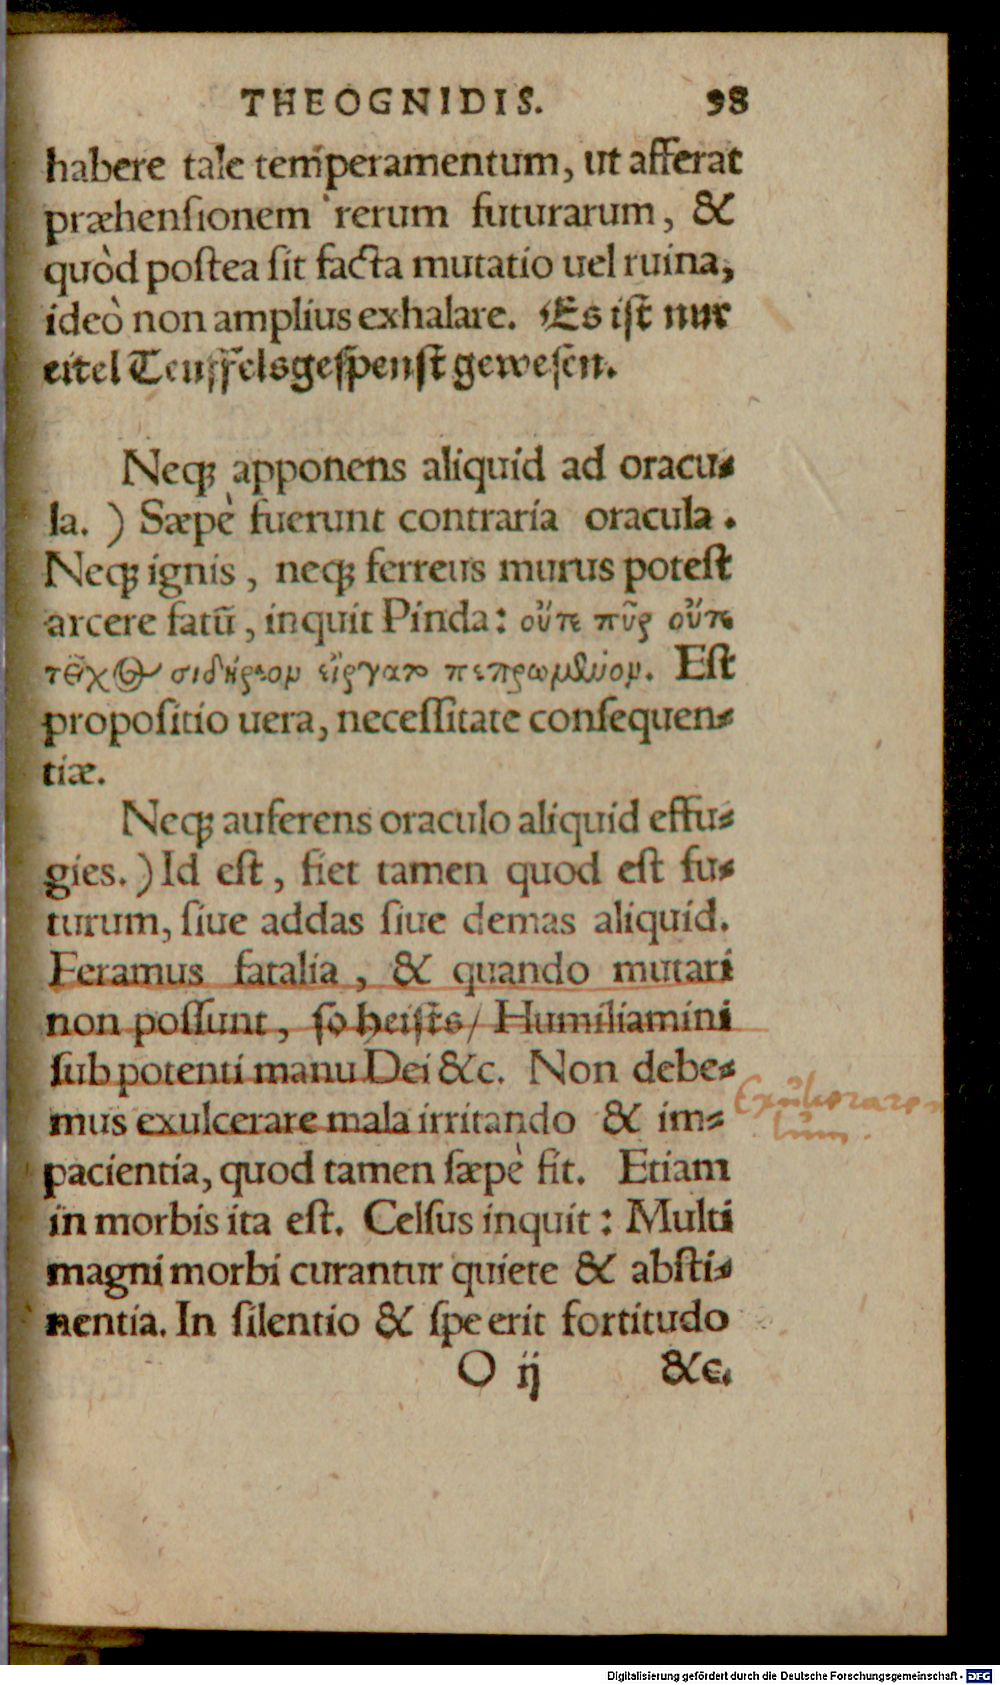 THEOGNIDIS. 98
habere tale temperamentum, ut afferat
præhensionem rerum futurarum, &
quòd postea sit facta mutatio uel ruina,
ideò non amplius exhalare. Es ist nur
eitel Teuffelsgespenst gewesen.
Neqꝫ apponens aliquid ad oracu⸗
la. ) Sæpè fuerunt contraria oracula.
Neqꝫ ignis, neqꝫ ferreus murus potest
arcere fatũ, inquit Pinda: οὔτε πῦρ οὔτε
τεῖχος σιδήρεον εἴργατο πεπρωμένον. Est
propositio uera, necessitate consequen⸗
tiæ.
Neqꝫ auferens oraculo aliquid effu⸗
gies. ) Id est, fiet tamen quod est fu⸗
turum, siue addas siue demas aliquid.
Feramus fatalia, & quando mutari
non possunt, so heists/ Humiliamini
sub potenti manu Dei &c. Non debe⸗
mus exulcerare mala irritando & im⸗
Exulcerare
pacientia, quod tamen sæpè fit. Etiam
in morbis ita est. Celsus inquit: Multi
magni morbi curantur quiete & absti⸗
nentia. In silentio & spe erit fortitudo
O ij &c.
Digitalisierung gefördert durch die Deutsche Forschungsgemeinschaft - DFG